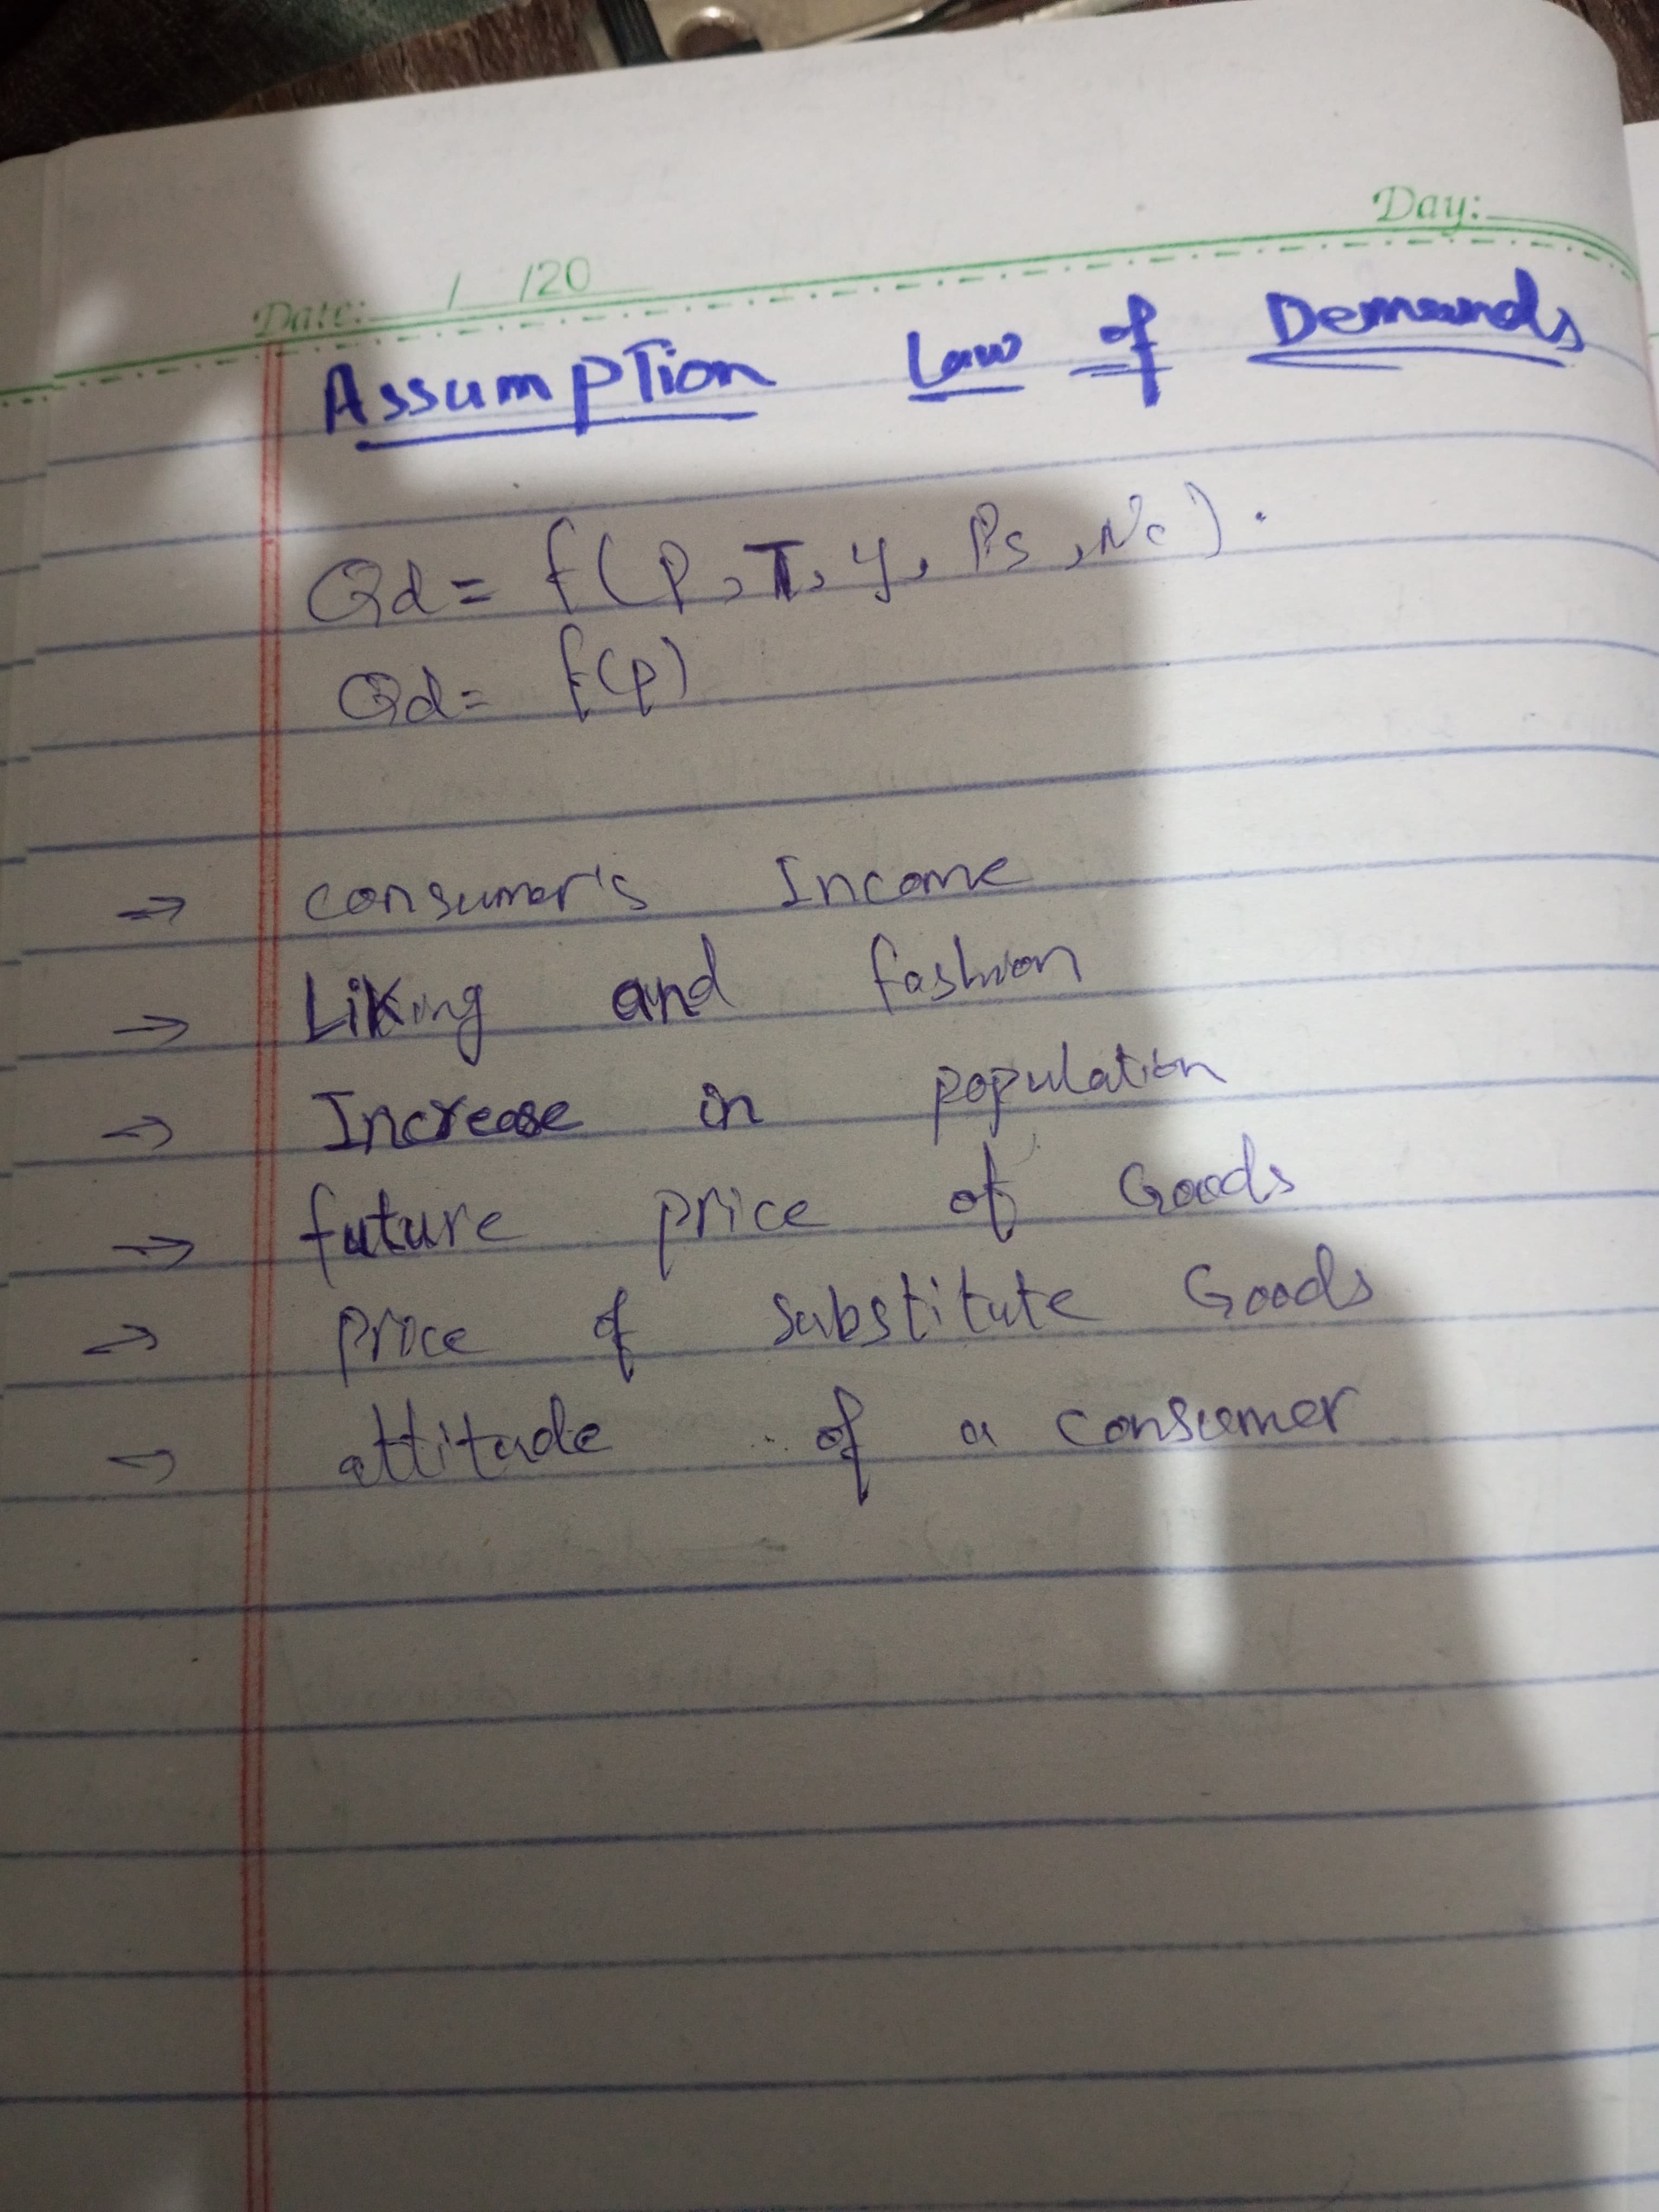 Day:
Date: / /20
Assumption Law of Demands
Qd = f(P, T, y, Ps, Nc).
Qd = f(P)
→ consumer's Income
→ Liking and fashion
→ Increase in population
→ future price of Goods
→ price of substitute Goods
→ attitude of a consumer